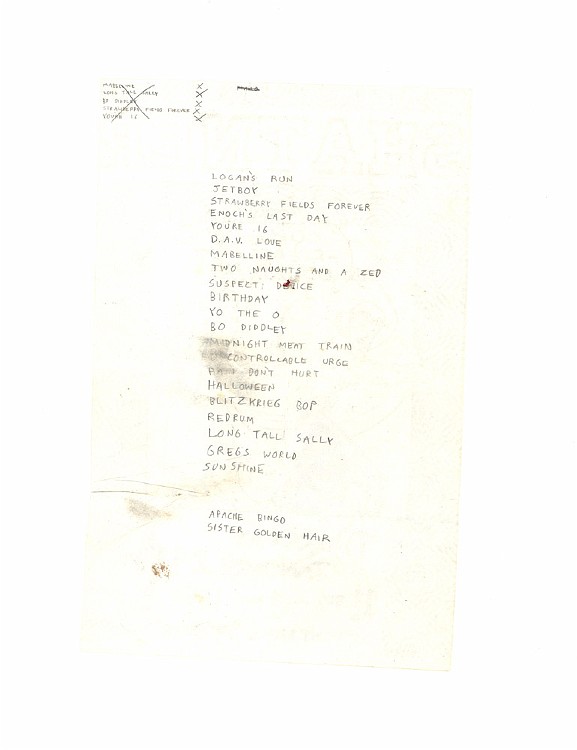 MABELLINE
LONG TALL SALLY
BO DIDDLEY
STRAWBERRY FIELDS FOREVER
YOURE 16
LOGAN'S RUN
JETBOY
STRAWBERRY FIELDS FOREVER
ENOCH'S LAST DAY
YOURE 16
D.A.V. LOVE
MABELLINE
TWO NAUGHTS AND A ZED
SUSPECT: DEVICE
BIRTHDAY
YO THE O
BO DIDDLEY
MIDNIGHT MEAT TRAIN
UNCONTROLLABLE URGE
PAIN DON'T HURT
HALLOWEEN
BLITZKRIEG BOP
REDRUM
LONG TALL SALLY
GREGS WORLD
SUNSHINE
APACHE BINGO
SISTER GOLDEN HAIR